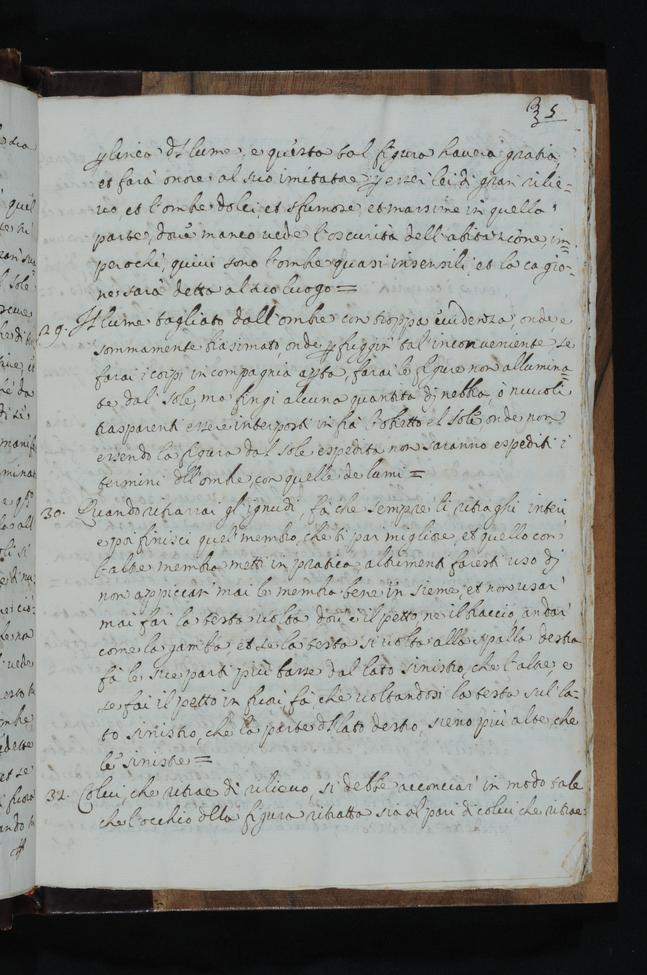 35
linea d'l lume, e questa tal figura haverà gratia,
et farà onore al suo imitatore esser lei di gran rilie-
vo, et l'ombre dolci, et sfumose, et massime in quella
parte, dove manco vede l'oscurità dell'abitatione, im-
perochè, quivi sono l'ombre quasi insensili, et la cagio-
ne sarà detta al suo luogo =
29. Il lume tagliato dall'ombre con troppa evidenza, onde e
sommamente biasimato, onde p fuggir tal'inconveniente se
farai i corpi in compagnia apta, farai le figure non allumina=
te dal sole, ma fingi alcuna quantità di nebbia, ò nuvoli
trasparenti essere interposti infra l'obietto el sole, onde non
essendo la figura dal sole espedita non saranno espediti i
termini dll'ombre, con quelle de lumi =
30. Quando ritrarrai gl'ignudi, fà che sempre li ritraghi interi
e poi finisci quel membro, che ti par migliore, et quello con
l'altre membra metti in pratica, altrimenti faresti uso di
non appiccar mai le membra bene in sieme, et non usar
mai far la testa volta dov'è il petto, ne il braccio andar
come la gamba, et se la testa si volta alla spalla destra
fà le sue parti più basse dal lato sinistro, che l'altre, e
se fai il petto in fuori fà, che voltandosi la testa sul la-
to sinistro, che la parte dl lato destro, sieno più alte, che
le sinistre =
31. Colui, che ritrae di rilievo si debbe acconciar in modo tale
che l'occhio dlla figura ritratta sia al pari di colui che ritrae: